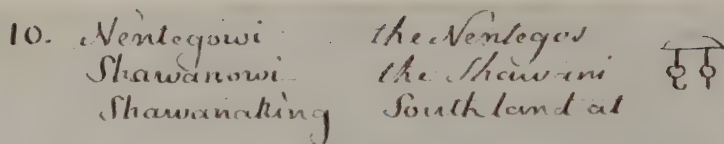 10. Nentegowi the Nentegos
Shawanowi the Shawani
Shawanaking South land at